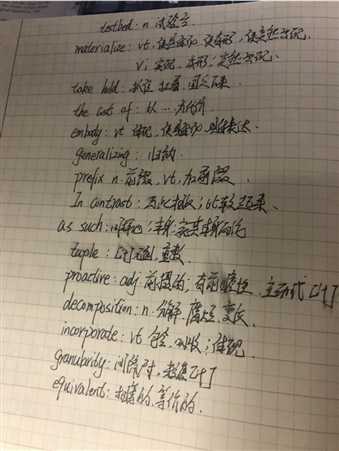 testbed: n. 试验台
materialize: vt. 使具体化, 使有形, 使突然出现.
vi. 实现, 成形; 突然出现.
take hold: 抓住, 固定下来.
the cost of: 以...为代价
embody: vt 体现, 使具体化, 具体表达.
generalizing: 归纳
prefix n. 前缀, vt, 加前缀
In contrast: 与此相反; 比较起来.
as such:
tuple: [计] 元组, 重数
proactive: adj 前摄的, 有前瞻性, 主动式 [计]
decomposition: n. 分解, 腐烂, 变质
incorporate: vt 包含, 吸收; 体现
granularity: 间隔尺寸, 粒度 [计]
equivalent: 相等的, 等价的.